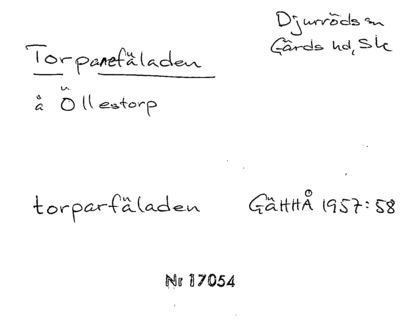 Djurröds sn
Gärds hd, Sk
Torparefäladen
å Öllestorp
torparfäladen GäHHÅ 1957:58
Nr 17054